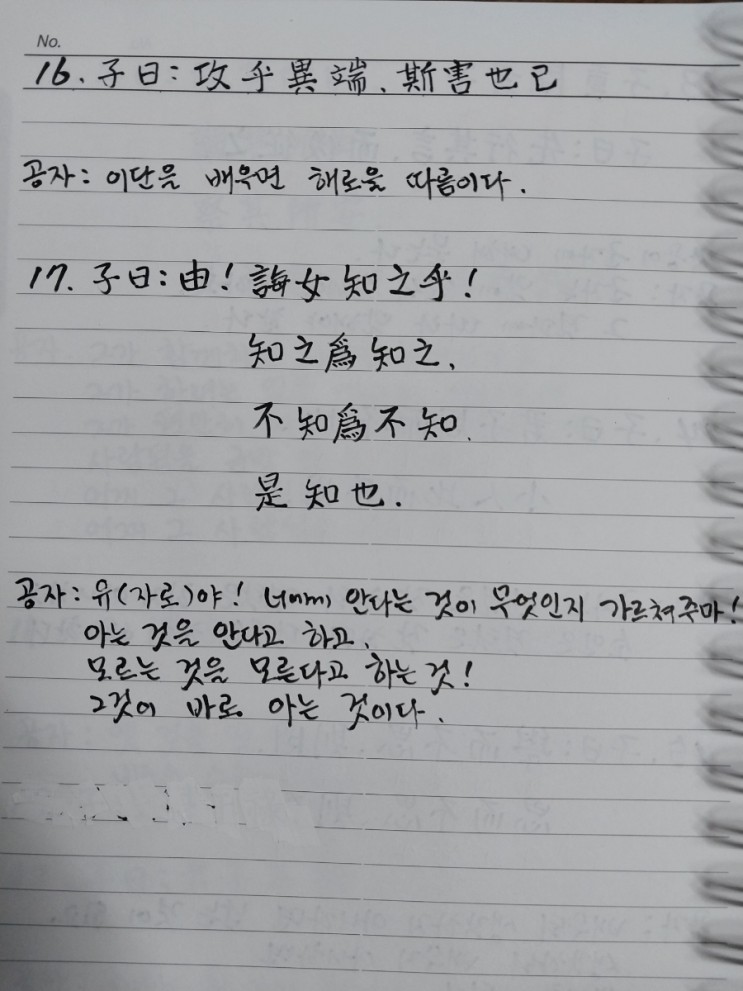 No.
16. 子曰: 攻乎異端、斯害也已
공자: 이단을 배우면 해로울 따름이다.
17. 子曰: 由! 誨女知之乎!
知之爲知之、
不知爲不知.
是知也.
공자: 유(자로)야! 너에게 안다는 것이 무엇인지 가르쳐주마!
아는 것을 안다고 하고,
모르는 것을 모른다고 하는 것!
그것이 바로 아는 것이다.